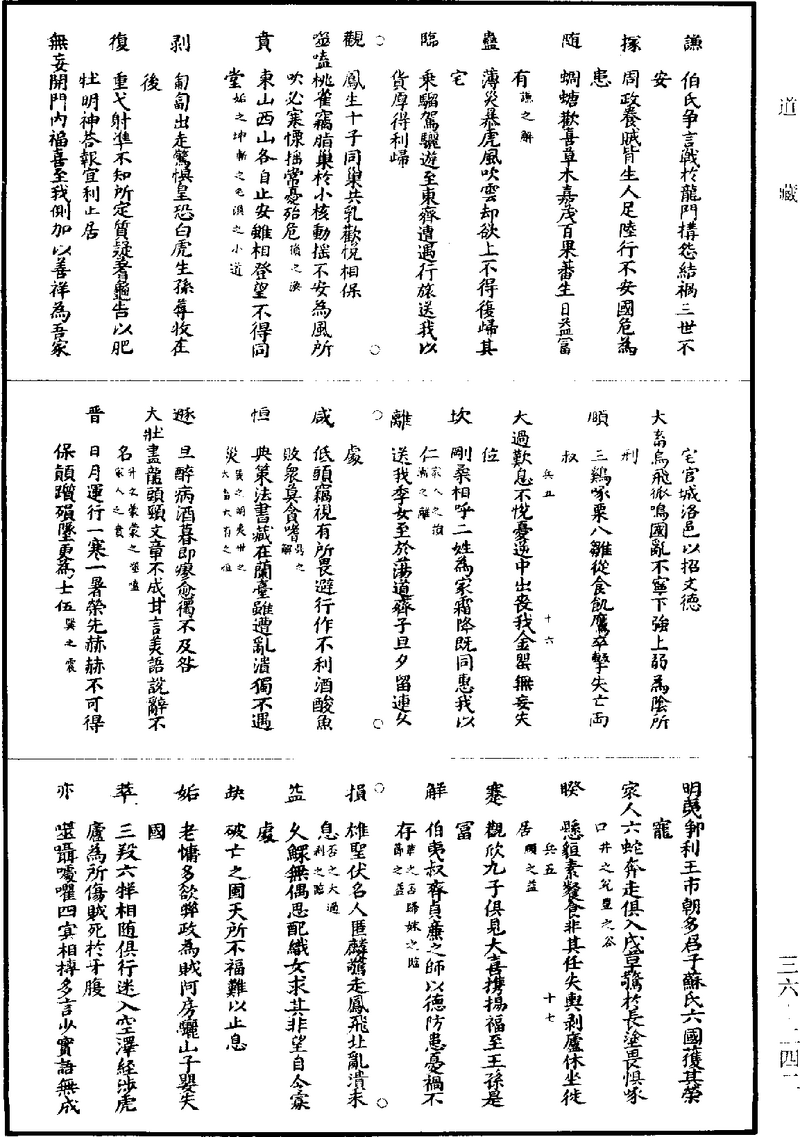 道藏
謙　伯氏爭言戰於龍門搆怨結禍三世不
安
豫　周政養賊背生人足陸行不安國危為
患
随　蜩螗歡喜草木嘉茂百果蕃生日益富
有謙之解
蠱　薄災暴虎風吹雲却欲上不得復歸其
宅
臨　乘騮駕驪遊至東齊遭遇行旅送我以
貨厚得利歸
觀　鳳生十子同巢共乳歡悅相保
噬嗑桃雀竊脂巢於小枝動摇不安為風所
吹必寒慄摇常憂殆危
賁　東山西山各自止安雖相登望不得同
堂
剥　匍匐出走驚惧皇恐白虎生孫蓐收在
後
復　重弋射隼不知所定質疑蓍龜告以肥
牡明神荅報宜利止居
無妄開門內福喜至我側加以善祥為吾家
宅宫城洛邑以招文德
大畜烏飛狐鳴國亂不寧下強上弱為隂所
刑
頤　三鷄啄粟八雛從食飢鷹卒擊失亡両
叔
兵五　十六
大過歎息不悅憂逆中出喪我金罌無妄失
位
坎　剛柔相呼二姓為家霜降既同惠我以
仁
離　送我季女至於蕩道齊子旦夕留連久
處
咸　低頭竊視有所畏避行作不利酒酸魚
敗衆莫貪嗜
恒　典策法書藏在蘭臺雖遭亂潰獨不遇
災
遯　旦醉病酒暮即瘳愈獨不及咎
大壯畫龍頭頸文章不成甘言美語說辭不
名
晋　日月運行一寒一暑榮先赫赫不可得
保顛躓殞墜更為士伍巽之震
明夷鄣利王市朝多君子蘇氏六國獲其榮
寵
家人六蛇奔走俱入茂草驚於長塗畏惧啄
口
兵五　十七
睽　懸貆素飡食非其任失輿剥廬休坐徙
居
蹇　觀欣九子俱見大喜携揚福至王孫是
富
解　伯夷叔齊貞廉之師以德防患憂禍不
存
損　雄聖伏名人匿麟驚走鳳飛北亂潰未
息
益　久鰥無偶思配織女求其非望自令寡
處
夬　破亡之國天所不福難以止息
姤　老慵多欲弊政為賊阿房驪山子嬰失
國
萃　三羖六牂相随俱行迷入空澤經涉虎
廬為所傷賊死於牙腹
亦　噬躡嚄嚾四寅相摶多言少實語無成
三六—二四二